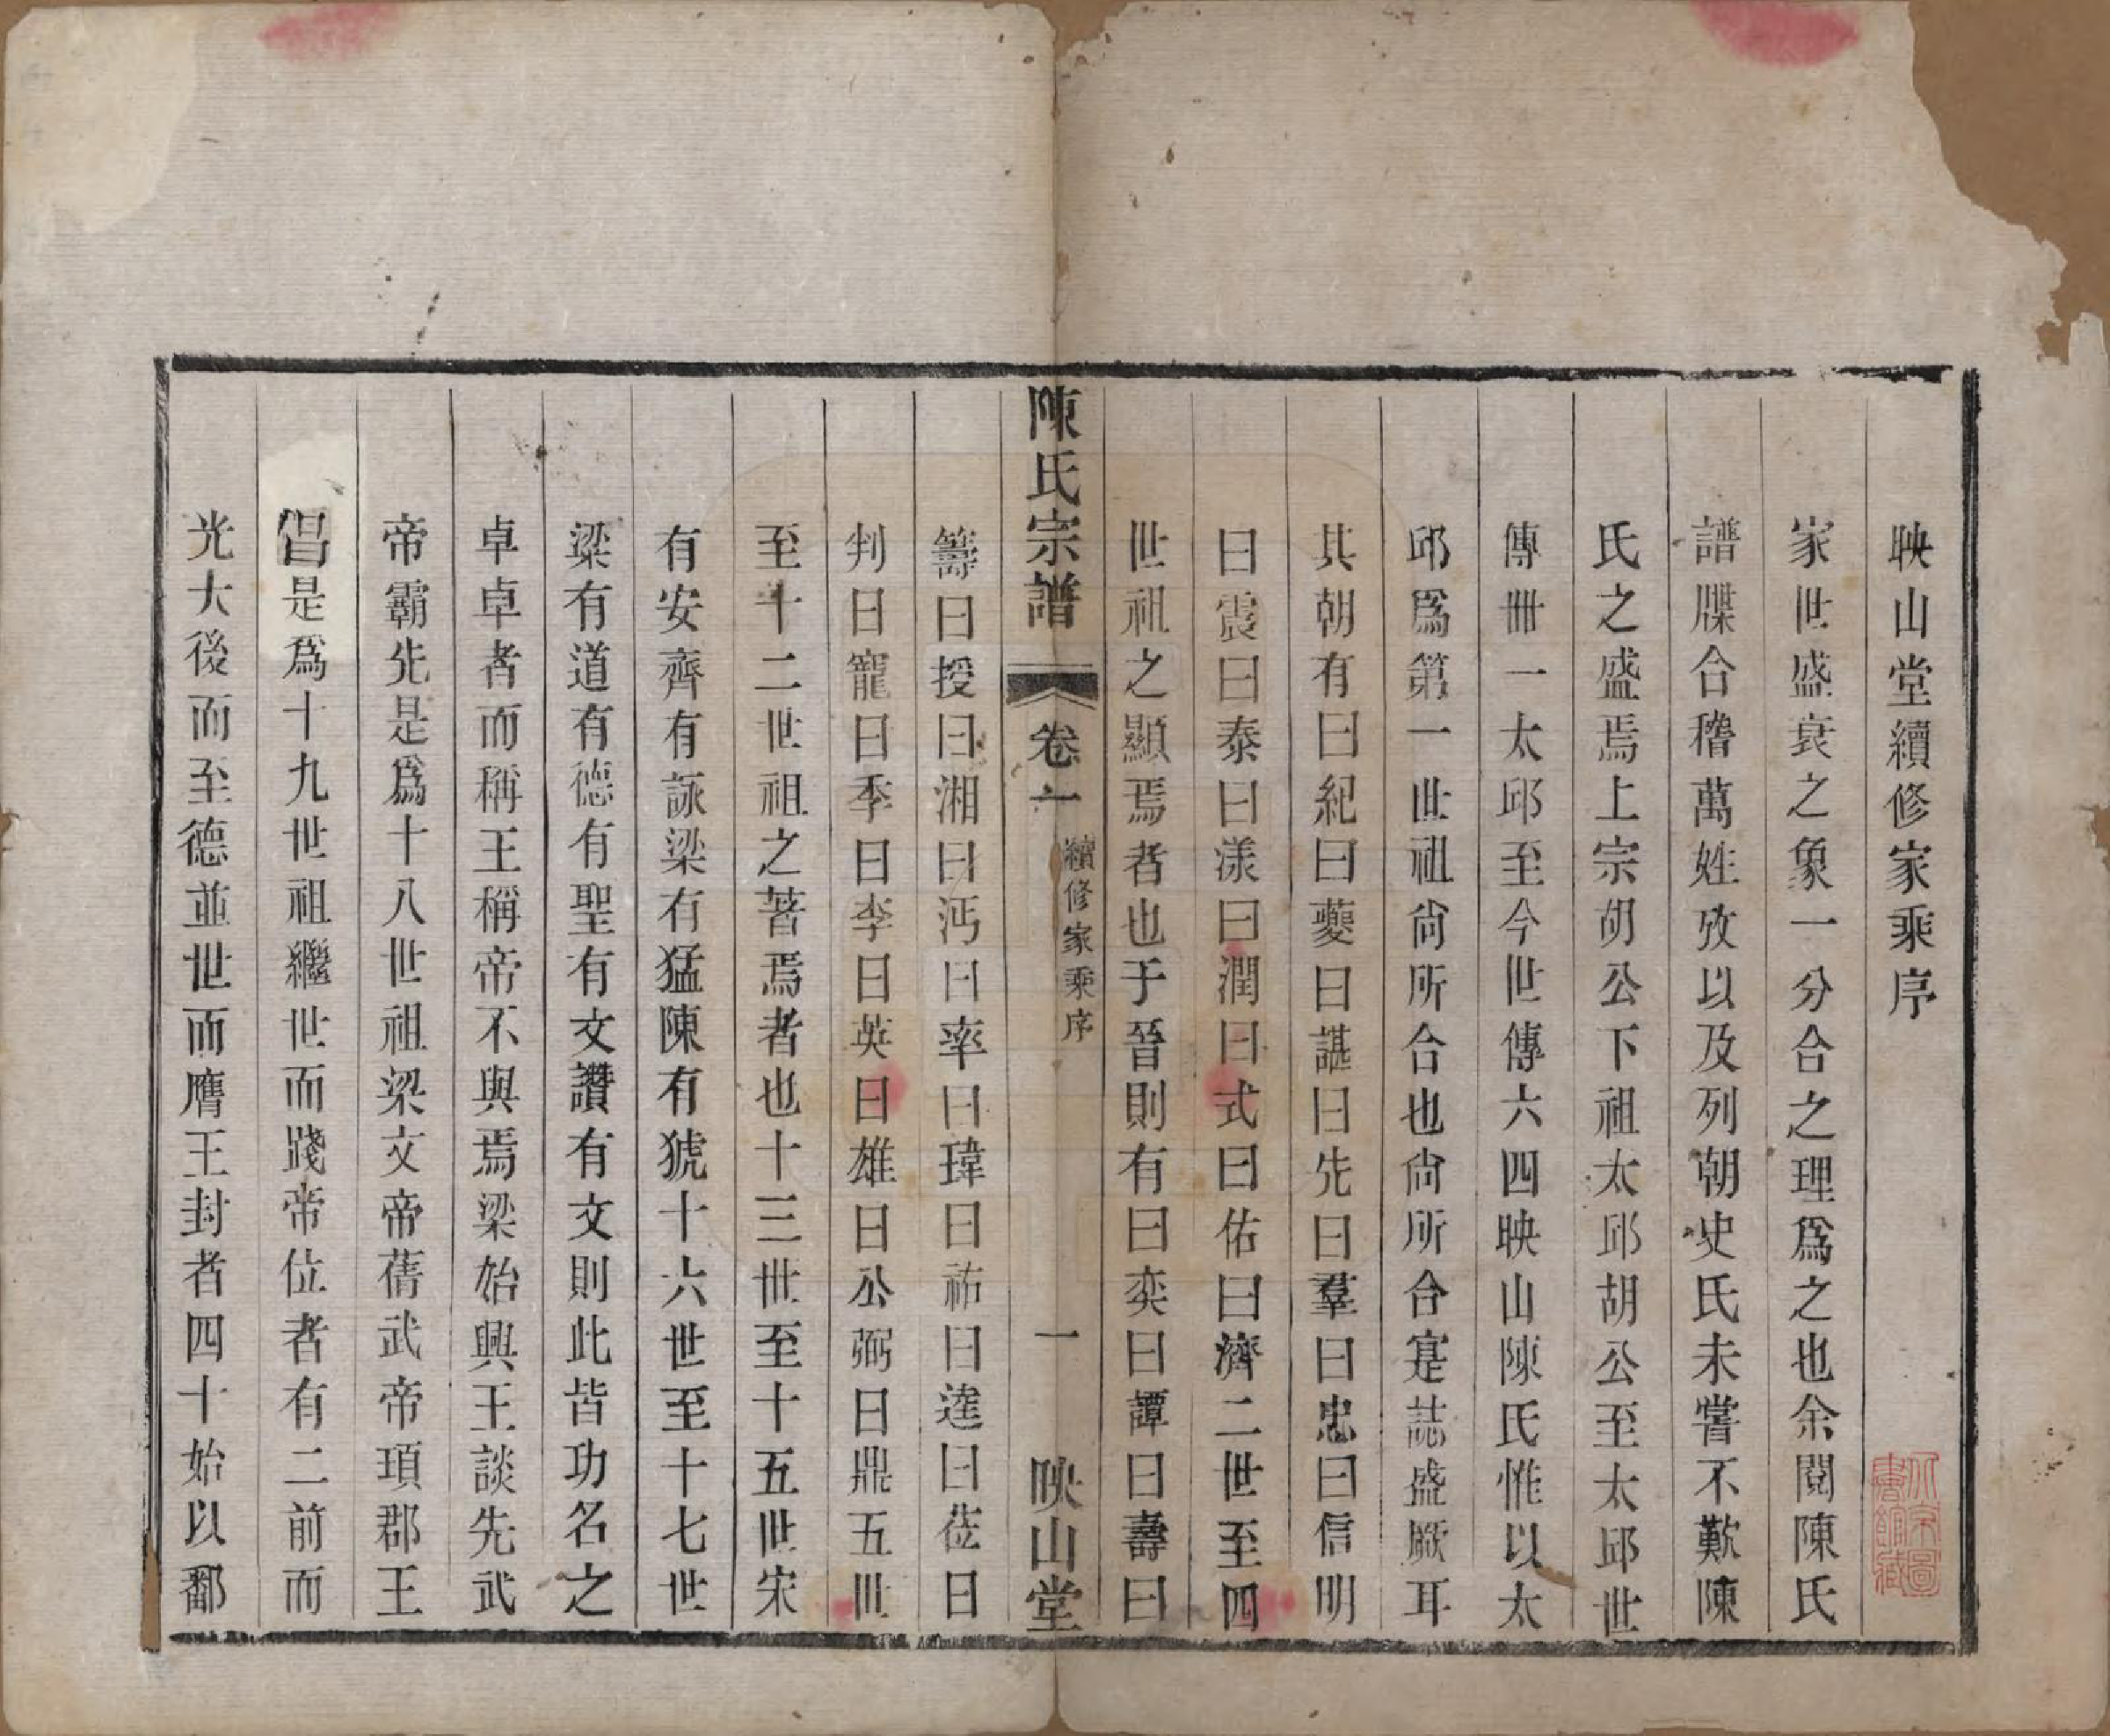 映山堂續修家乘序
家世盛衰之象一分合之理爲之也余閱陳氏
譜牒合稽萬姓攷以及列朝史氏未嘗不歎陳
氏之盛焉上宗胡公下祖太邱胡公至太邱世
傳卌一太邱至今世傳六四映山陳氏惟以太
邱爲第一世祖尙所合也尙所合寔誌盛厥耳
其朝有曰紀曰夔曰諶曰先曰羣曰忠曰信明
曰震曰泰曰漾曰潤曰式曰佑曰濟二世至四
世祖之顯焉者也于晉則有曰奕曰譚曰壽曰
陳氏宗譜 卷一 續修家乘序 一 映山堂
籌曰授曰湘曰沔曰率曰瑋曰祐曰逹曰莅曰
判曰寵曰季曰李曰英曰雄曰公弼曰鼎五世
至十二世祖之著焉者也十三世至十五世宋
有安齊有詠梁有猛陳有猇十六世至十七世
梁有道有德有聖有文讚有文則此皆功名之
卓卓者而稱王稱帝不與焉梁始興王談先武
帝霸先是爲十八世祖梁文帝蒨武帝頊郡王
昌是爲十九世祖繼世而踐帝位者有二前而
光大後而至德並世而膺王封者四十始以鄱